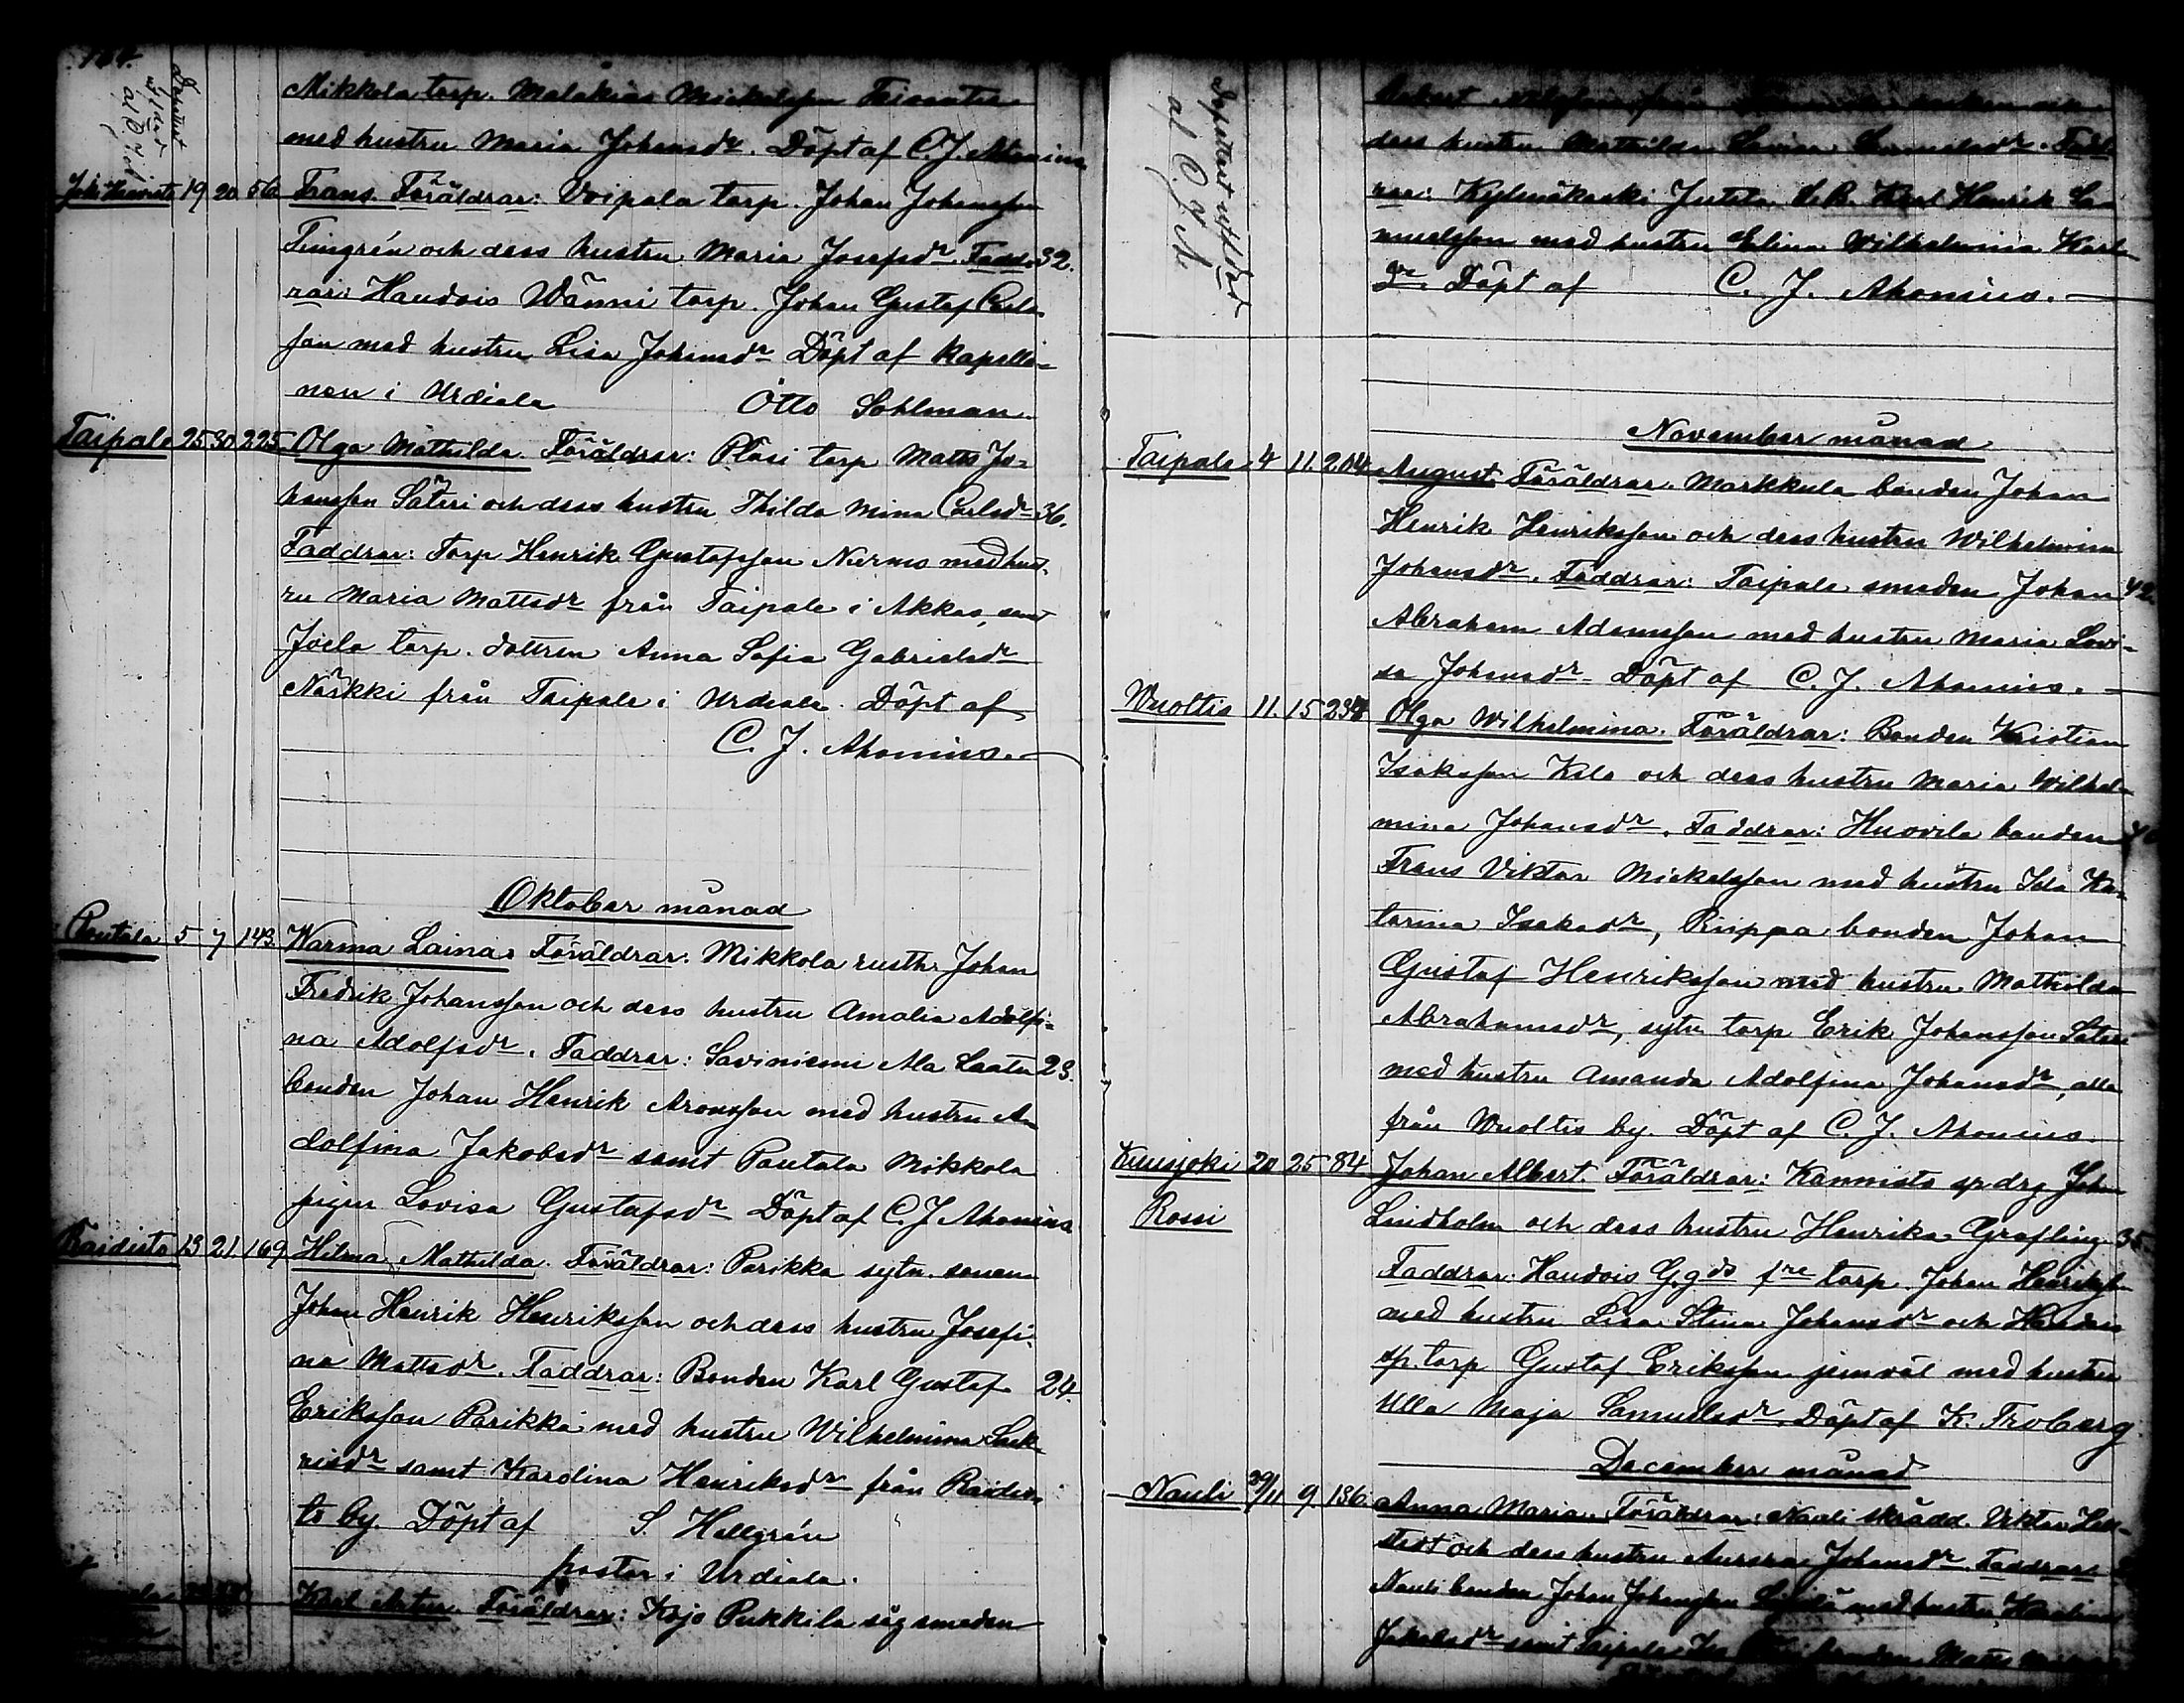 Mikkola torp. Malakias Mickelsson
med hustru Maria Johansdr. Döpt af C. J. Ahonius
19 20 56 Frans. Föräldrar: Voipala torp. Johan Johansson
och dess hustru Maria Josefsdr. Fadd- 32.
rar: Handois Wänni torp. Johan Gustaf Carls-
son med hustru Lisa Johansdr Döpt af kapella-
nen i Urdiala Otto Sohlman.
Taipale 25 30 225 Olga Mathilda. Föräldrar: Pläsi torp Matts Jo-
hansson Säteri och dess hustru Thilda Mina Carlsdr 36.
Faddrar: Torp Henrik Gustafsson Nurmi med hust-
ru Maria Mattsdr från Taipale i Akkas, samt
Joela torp. dottren Anna Sofia Gabrielsdr
Närkki från Taipale i Urdiala. Döpt af
C. J. Ahonius.
Oktober månad
Pentala 5 7 143 Warma Laina. Föräldrar. Mikkola rusth. Johan
Fredrik Johansson och dess hustru Amalia Adolfi-
na Adolfsdr. Faddrar: Saviniemi Ala Laatu 23.
bonden Johan Henrik Aronsson med hustru A-
dolfina Jakobsdr samt Pentala Mikkola
pigan Lovisa Gustafsdr Döpt af C. J. Ahonius
Raidisto 13 21 169 Hilma Mathilda. Föräldrar: Parikka sytn. sonen
Johan Henrik Henriksson och dess hustru Josefi-
na Mattsdr. Faddrar: Bonden Karl Gustaf 24.
Eriksson Parikka med hustru Wilhelmina
samt Karolina Henriksdr från Raidis-
to by. Döpt af S. Hellgrén
pastor i Urdiala.
Karl Artur. Föräldrar: Kojo Pukkila sågsmeden
dess hustru Mathilda Lovisa Samuelsdr. Fadd-
rar: Kylmäkoski Jutila Karl Henrik Sa-
muelsson med hustru Elina Wilhelmina Karls-
dr. Döpt af C. J. Ahonius.
November månad
Taipale 4 11 204 August. Föräldrar. Markkula bonden Johan
Henrik Henriksson och dess hustru Wilhelmina
Johansdr. Faddrar: Taipale smeden Johan 42.
Abraham Adamsson med hustru Maria Lovi-
sa Johansdr. Döpt af C. J. Ahonius.
Wuoltis 11 15 Olga Wilhelmina. Föräldrar: Bonden Kristian
Isaksson och dess hustru Maria Wilhel-
mina Johansdr. Faddrar: Huovila bonden
Frans Viktor Mickelsson med hustru Ida Ka-
tarina Isaksdr, Riippa bonden Johan
Gustaf Henriksson med hustru Mathilda
Abrahamsdr, sytn torp Erik Johansson
med hustru Amanda Adolfina Johansdr, alla
från Wuoltis by. Döpt af C. J. Ahonius.
Kuusjoki 20 25 84 Johan Albert. Föräldrar: Kannisto sp. drg Johan
Rossi Lindholm och dess hustru Henrika Grafling 35.
Faddrar: Handois Ggds fre torp. Johan Henriksson
med hustru Lisa Stina Johansdr och Handois
sp. torp Gustaf Eriksson jemväl med hustru
Ulla Maja Samuelsdr. Döpt af K. Froberg
December månad
Nauli 29/11 9 136 Anna Maria. Föräldrar: Nauli skrädd. Viktor
och dess hustru Aurora Johansdr. Faddrar:
Nauli bonden Johan Johansson med hustru Karolina
Jakobsdr samt Taipale bonden Matts